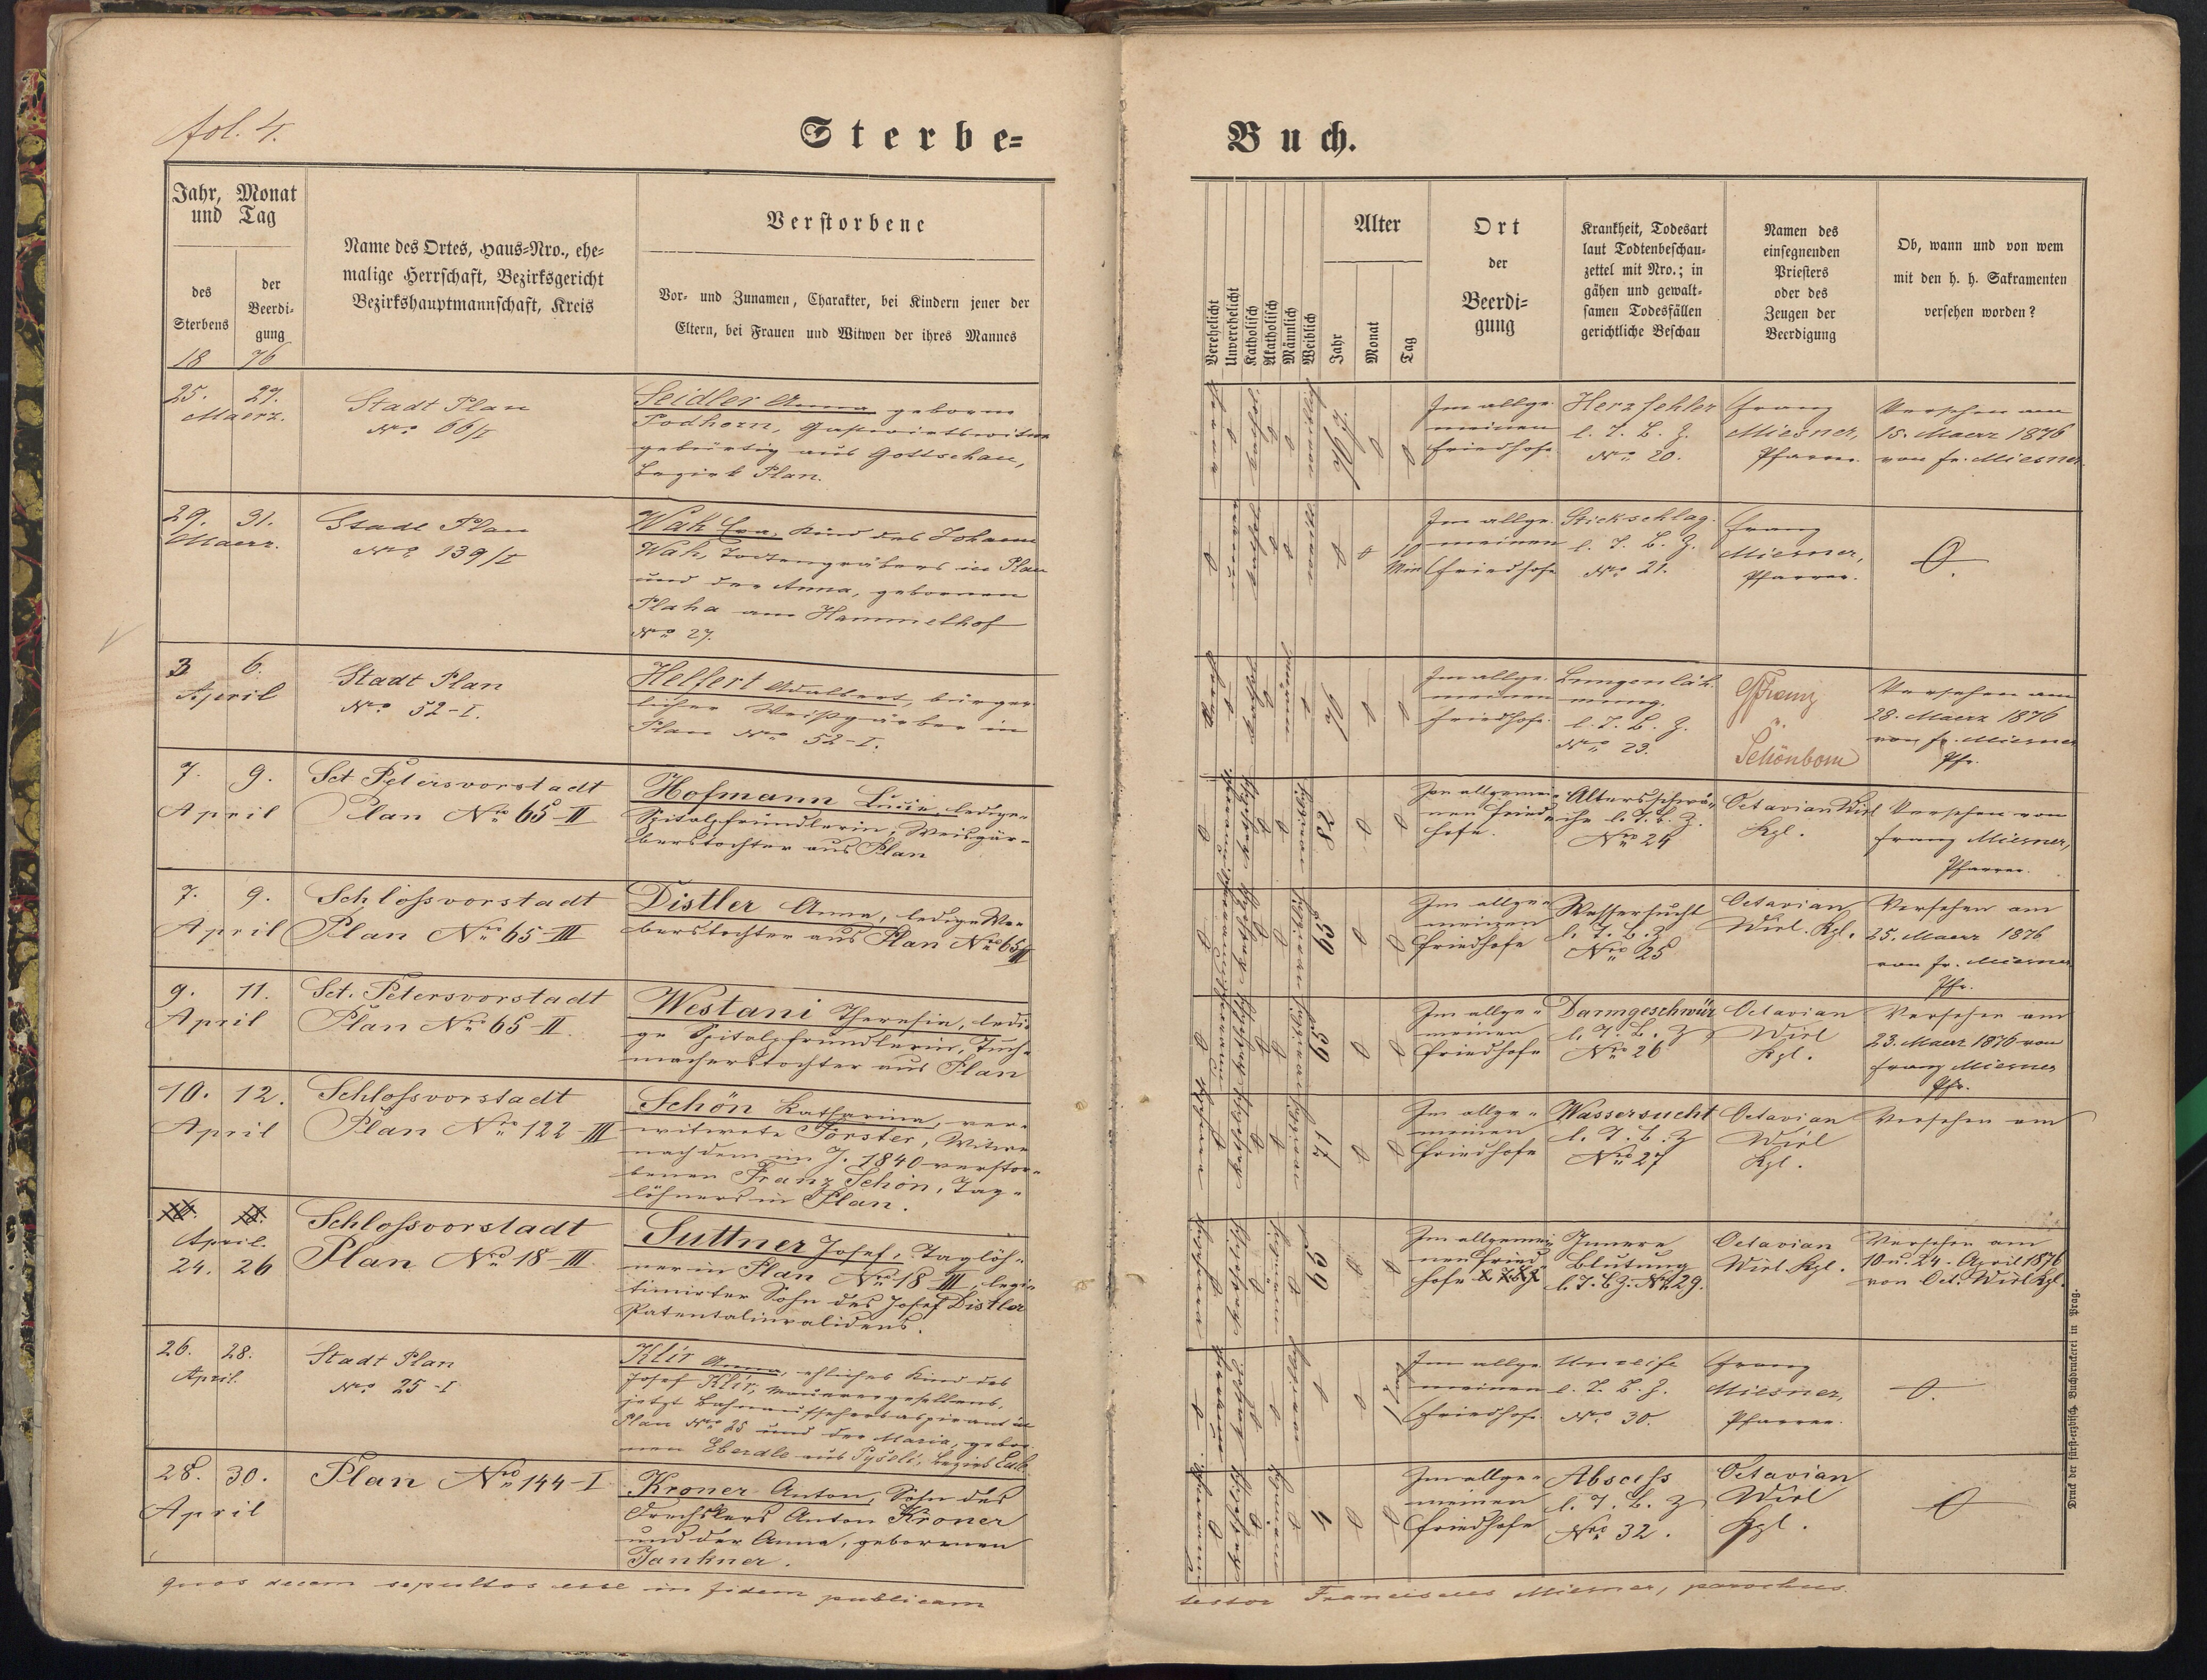 fol. 4.
Sterbe=
Buch.
Jahr, Monat
und Tag
des
Sterbens
der
Beerdi-
gung
18 76
Name des Ortes, Haus-Nro., ehe-
malige Herrschaft, Bezirksgericht
Bezirkshauptmannschaft, Kreis
Verstorbene
Vor- und Zunamen, Charakter, bei Kindern jener der
Eltern, bei Frauen und Witwen der ihres Mannes
Verehelicht
Unverehelicht
Katholisch
Akatholisch
Männlich
Weiblich
Alter
Jahr
Monat
Tag
Ort
der
Beerdi-
gung
Krankheit, Todesart
laut Todtenbeschau-
zettel mit Nro.; in
gähen und gewalt-
samen Todesfällen
gerichtliche Beschau
Namen des
einsegnenden
Priesters
oder des
Zeugen der
Beerdigung
Ob, wann und von wem
mit den h. h. Sakramenten
versehen worden?
25. 27.
Maerz.
Stadt Plan
Nro 66/I
Seidler Anna geborne
Podhorn, Gastwirtswitwe
gebürtig aus Gottschau,
Bezirk Plan.
Im allge-
meinen
Friedhofe
Herzfehler
l. T. B. Z.
Nro 20.
Franz
Miesner,
Pfarrer.
Versehen am
15. Maerz 1876
von Fr. Miesner
29. 31.
Maerz.
Stadt Plan
Nro 139/I
Wak Eva, Kind des Johann
Wak, Todtengräbers in Plan
und der Anna, gebornen
Plaha am Hammelhof
Nro 27.
10
Min
Im allge-
meinen
Friedhofe
Stickschlag.
l. T. B. Z.
Nro 21.
Franz
Miesner,
Pfarrer.
0.
3 6.
April
Stadt Plan
Nro 52-I.
Helfert Adalbert, bürger-
licher Weißgärber in
Plan Nro 52-I.
Im allge-
meinen
Friedhofe.
Lungenläh-
mung.
l. T. B. Z.
Nro 23.
Franz
Schönborn
Versehen am
28. Maerz 1876
von Fr. Miesner
Pfr.
7. 9.
April
Sct Petersvorstadt
Plan Nro 65-II
Hofmann Lucie, ledige
Spitalpfründlerin, Weisgär-
berstochter aus Plan
Im allgemei-
nen Fried-
hofe.
Altersschwä-
che l. T. B. Z.
Nro 24
Octavian Wirl
Kpl.
Versehen von
Franz Miesner,
Pfarrer.
7. 9.
April
Schlossvorstadt
Plan Nro 65-III
Distler Anna, ledige We-
berstochter aus Plan Nro 65/III
59
Im allge-
meinen
Friedhofe
Wassersucht
l. T. B. Z
Nro 25
Octavian
Wirl. Kpl.
Versehen am
25. Maerz 1876
von Fr. Miesner
Pfr.
9. 11.
April
Sct. Petersvorstadt
Plan Nro 65-II.
Westani Theresia, ledi-
ge Spitalpfründlerin, Tuch-
macherstochter aus Plan
59
Im allge-
meinen
Friedhofe
Darmgeschwür
l. T. B. Z
Nro 26
Octavian
Wirl
Kpl.
Versehen am
23. Maerz 1876 von
Franz Miesner
Pfr.
10. 12.
April
Schlossvorstadt
Plan Nro 122-III
Schön Katharina, ver-
witwete Förster, Witwe
nach dem im J. 1840 verstor-
benen Franz Schön, Tag-
löhners in Plan.
Im allge-
meinen
Friedhofe
Wassersucht
l. T. B. Z
Nro 27
Octavian
Wirl
Kpl.
Versehen am
April.
24. 26
Schlossvorstadt
Plan Nro 18-III.
Suttner Josef, Taglöh-
ner in Plan Nro 18-III, legi-
timirter Sohn des Josef Distler
Patentalinvalidens.
Im allgemei-
nen Fried-
hofe
Innere
Blutung
l. T. B. Z. Nro 29.
Octavian
Wirl Kpl.
Versehen am
10 u. 24. April 1876
von Oct. Wirl Kpl.
26. 28.
April.
Stadt Plan
Nro 25-I
Klir Anna, ehliches Kind des
Josef Klir, Maurergesellens,
jetzt Bahnaufsehersaspirant in
Plan Nro 25 und der Maria, gebor-
nen Eberdle aus Pyšeli, Bezirk Eule
Im allge-
meinen
Friedhofe.
Unreife
l. T. B. Z.
Nro 30.
Franz
Miesner,
Pfarrer.
0.
28. 30.
April
Plan Nro 144-I
Kroner Anton, Sohn des
Drechslers Anton Kroner
und der Anna, gebornen
Jankner.
4
Im allge-
meinen
Friedhofe
Abscess
l. T. B. Z
Nro 32.
Octavian
Wirl
Kpl.
0
quos decem sepultos esse in fidem publicam
testor Franciscus Miesner, parochus.
Druck der fürst-erzbisch. Buchdruckerei in Prag.